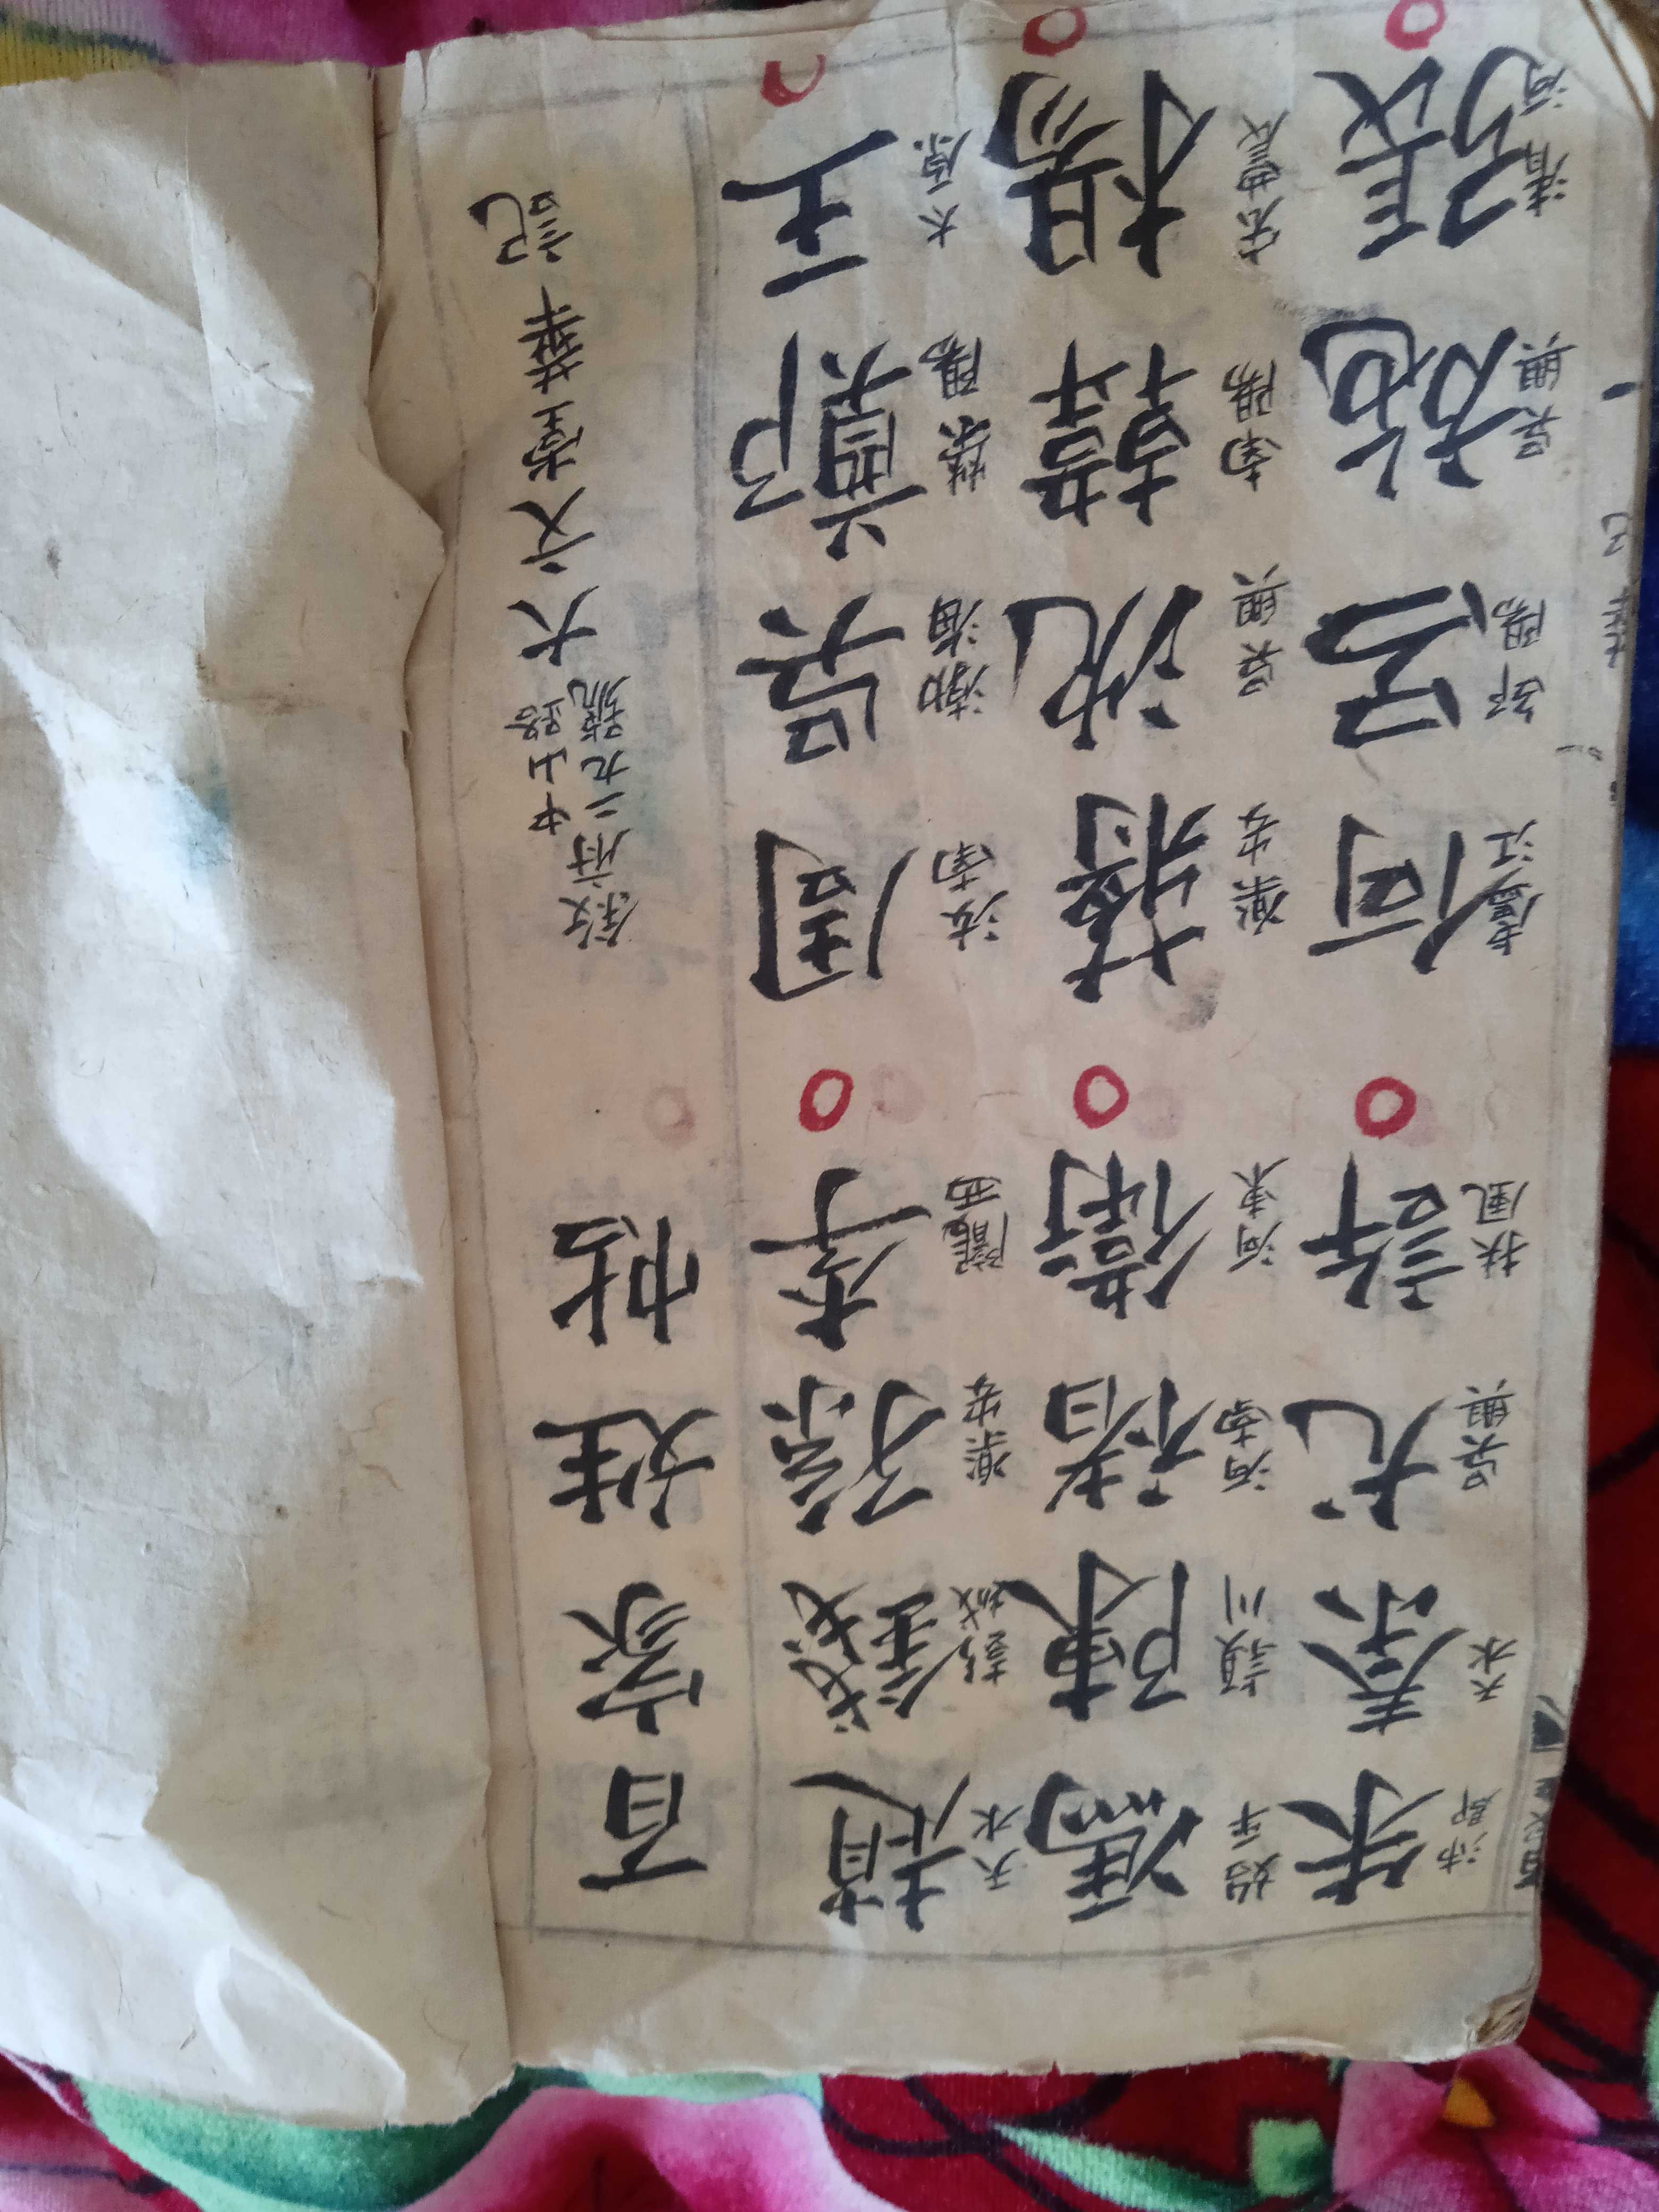 百家姓帖
敘府中山路二九號 大文堂華記
趙錢孫李 周吳鄭王
天水 彭城 樂安 隴西 汝南 渤海 滎陽 太原
馮陳褚衛 蔣沈韓楊
始平 潁川 河南 河東 樂安 吳興 南陽 宏農
朱秦尤許 何呂施張
沛郡 天水 吳興 扶風 廬江 陽 吳興 清河